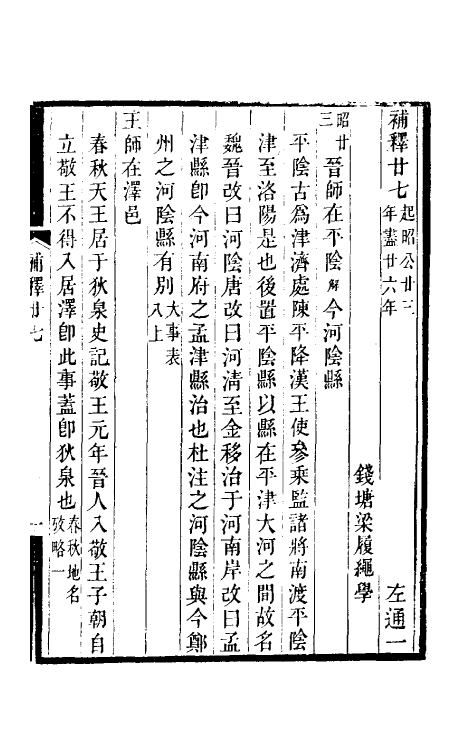 補釋廿七起昭公廿三年盡廿六年 左通一
錢塘梁履繩學
昭廿三晉師在平陰解今河陰縣
平陰古爲津濟處陳平降漢王使參乘監諸將南渡平陰
津至洛陽是也後置平陰縣以縣在平津大河之間故名
魏晉改曰河陰唐改曰河清至金移治于河南岸改曰孟
津縣卽今河南府之孟津縣治也杜注之河陰縣與今鄭
州之河陰縣有別大事表入上
王師在澤邑
春秋天王居于狄泉史記敬王元年晉人入敬王子朝自
立敬王不得入居澤卽此事蓋卽狄泉也春秋地名攷略一
補釋廿七
一